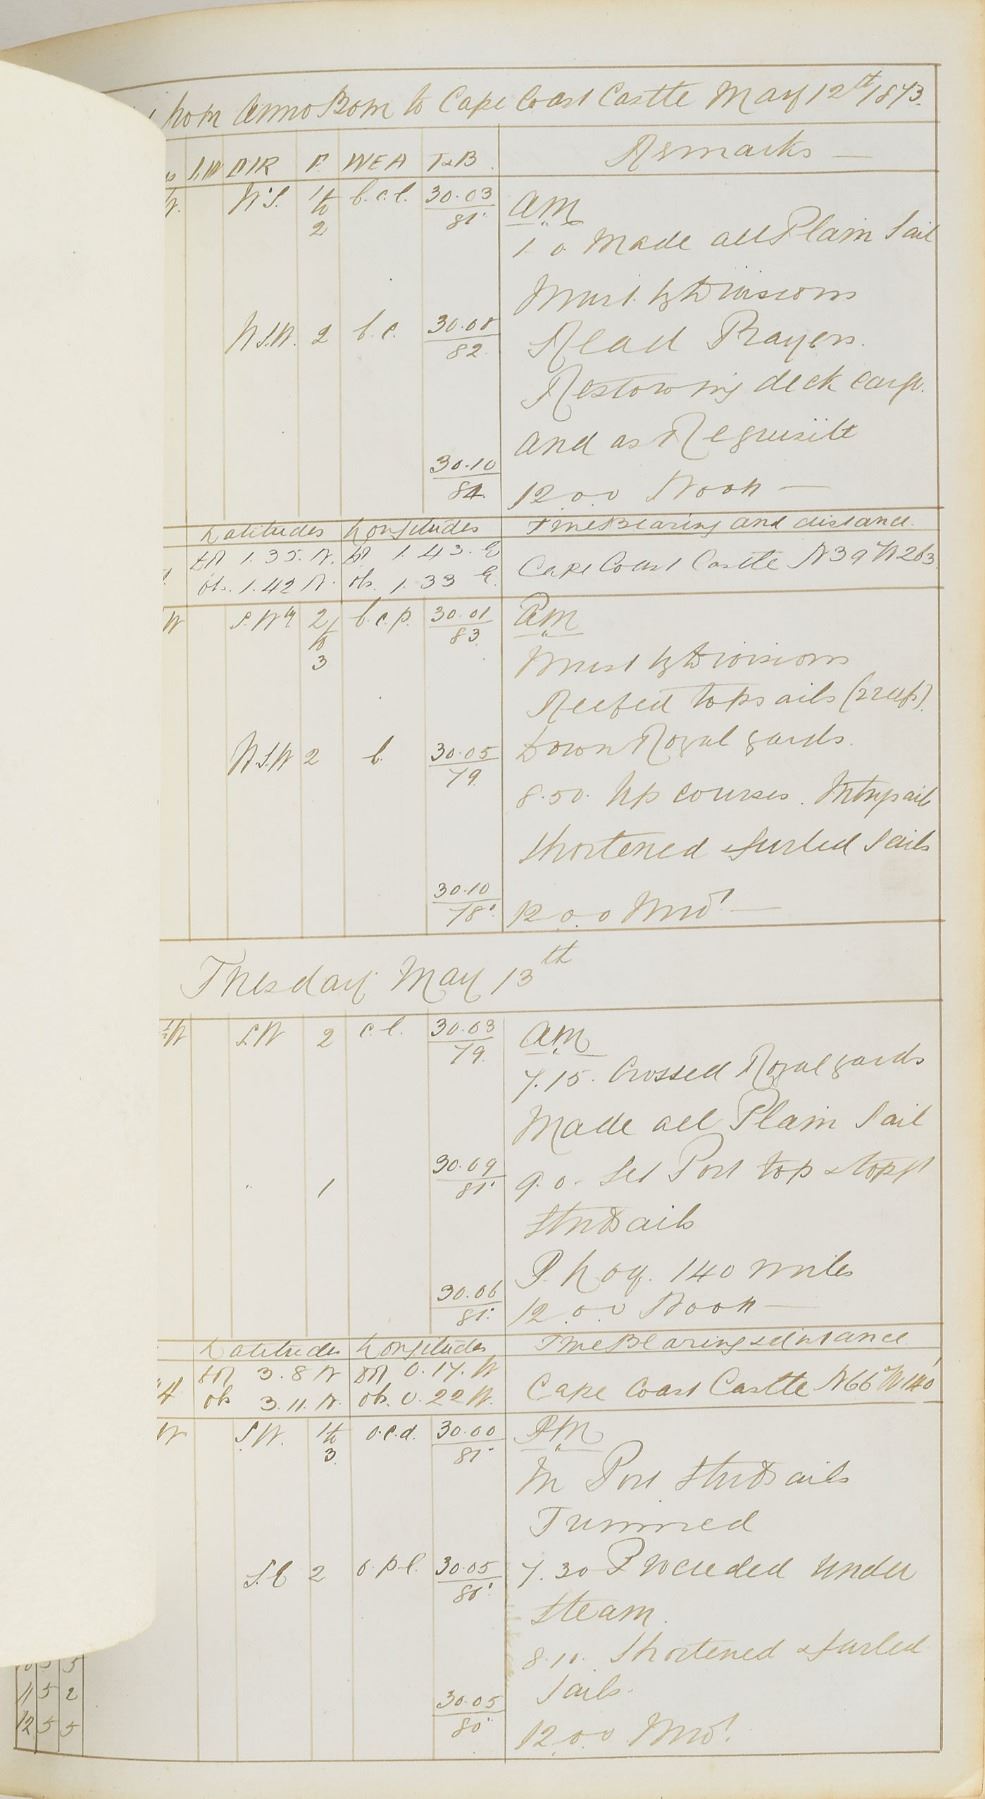 from Anno Bom to Cape Coast Castle May 12th 1873.
DIR F WEA T&B Remarks —
W.S. 1 to 2 b.c.l. 30.03 81 AM
1.0 Made all Plain Sail
Must by Divisions
W.S.W. 2 b.c. 30.08 82 Read Prayers.
Restowing deck cargo.
and as Requisite
30.10 84 12.0.0 Noon —
Latitudes Longitudes True Bearing and distance.
DR 1.35.N. DR 1.43.E
obs. 1.42 N. obs. 1.33 E. Cape Coast Castle N39°W 263
W S.Wly 2 to 3 b.c.p. 30.01 83 PM
Must by Divisions
Reefed topsails (2 reefs)
W.S.W 2 b. 30.05 79 Down Royal yards.
8.50. Up courses.
Shortened & furled Sails
30.10 78 12.0.0 Mid! —
Tuesday May 13th
S.W 2 c.l. 30.03 79 AM
7.15. Crossed Royal yards
Made all Plain Sail
1 30.09 81 9.0. Set Port top & topgt
Studsails
P. Log. 140 miles
30.06 81 12.0.0 Noon —
Latitudes Longitudes True Bearing & distance
DR 3.8 N DR 0.17.W
obs 3.11.N. obs. 0.22 W. Cape Coast Castle N66°W 140'
W S.W. 1 to 3 o.c.d. 30.00 81 PM
In Port Studsails
Trimmed
S.E 2 o.p.l. 30.05 80 7.30 Proceeded under
Steam.
8.10. Shortened & furled
Sails.
30.05 80 12.0.0 Mid!
5 5
11 5 2
12 5 5